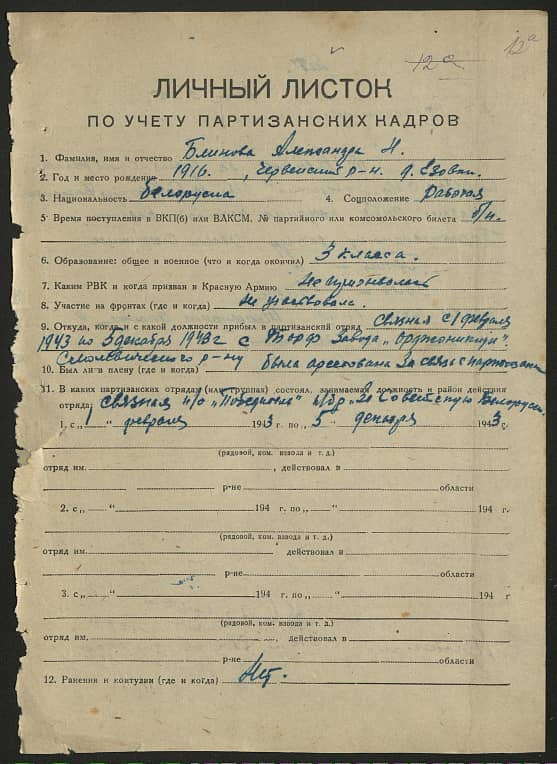 12а
12а
ЛИЧНЫЙ ЛИСТОК
ПО УЧЕТУ ПАРТИЗАНСКИХ КАДРОВ
1. Фамилия, имя и отчество Блинова Александра Н.
2. Год и место рождение 1916., Червенский р-н. д. Езовка.
3. Национальность белоруска 4. Соцположение Рабочая
5. Время поступления в ВКП(б) или ВЛКСМ, № партийного или комсомольского билета б/п.
6. Образование: общее и военное (что и когда окончил) 3 класса.
7. Каким РВК и когда призван в Красную Армию
8. Участие на фронтах (где и когда) Не участвовала.
9. Откуда, когда и с какой должности прибыл в партизанский отряд связная с 1 февраля
1943 по 5 декабря 1943 г с Торф завода „Орджоникидзе".
Смолевического р-на
10. Был ли в плену (где и когда) была арестована За связь с партизанами
11. В каких партизанских отрядах (или группах) состоял, занимаемая должность и район действия
отряда: связная п/о „Победитель" п/бр „За Советскую Белоруссию
1. с „1" февраля 1943 г. по „5" декабря 1943 г.
(рядовой, ком. взвода и т. д.)
отряд им. , действовал в
р-не области
2. с „ " 194 г. по „ " 194 г.
(рядовой, ком. взвода и т. д.)
отряд им. действовал в
р-не области
3. с „ " 194 г. по „ " 194 г
(рядовой, ком. взвода и т. д.)
отряд им. , действовал в
р-не области
12. Ранения и контузии (где и когда) Нет.